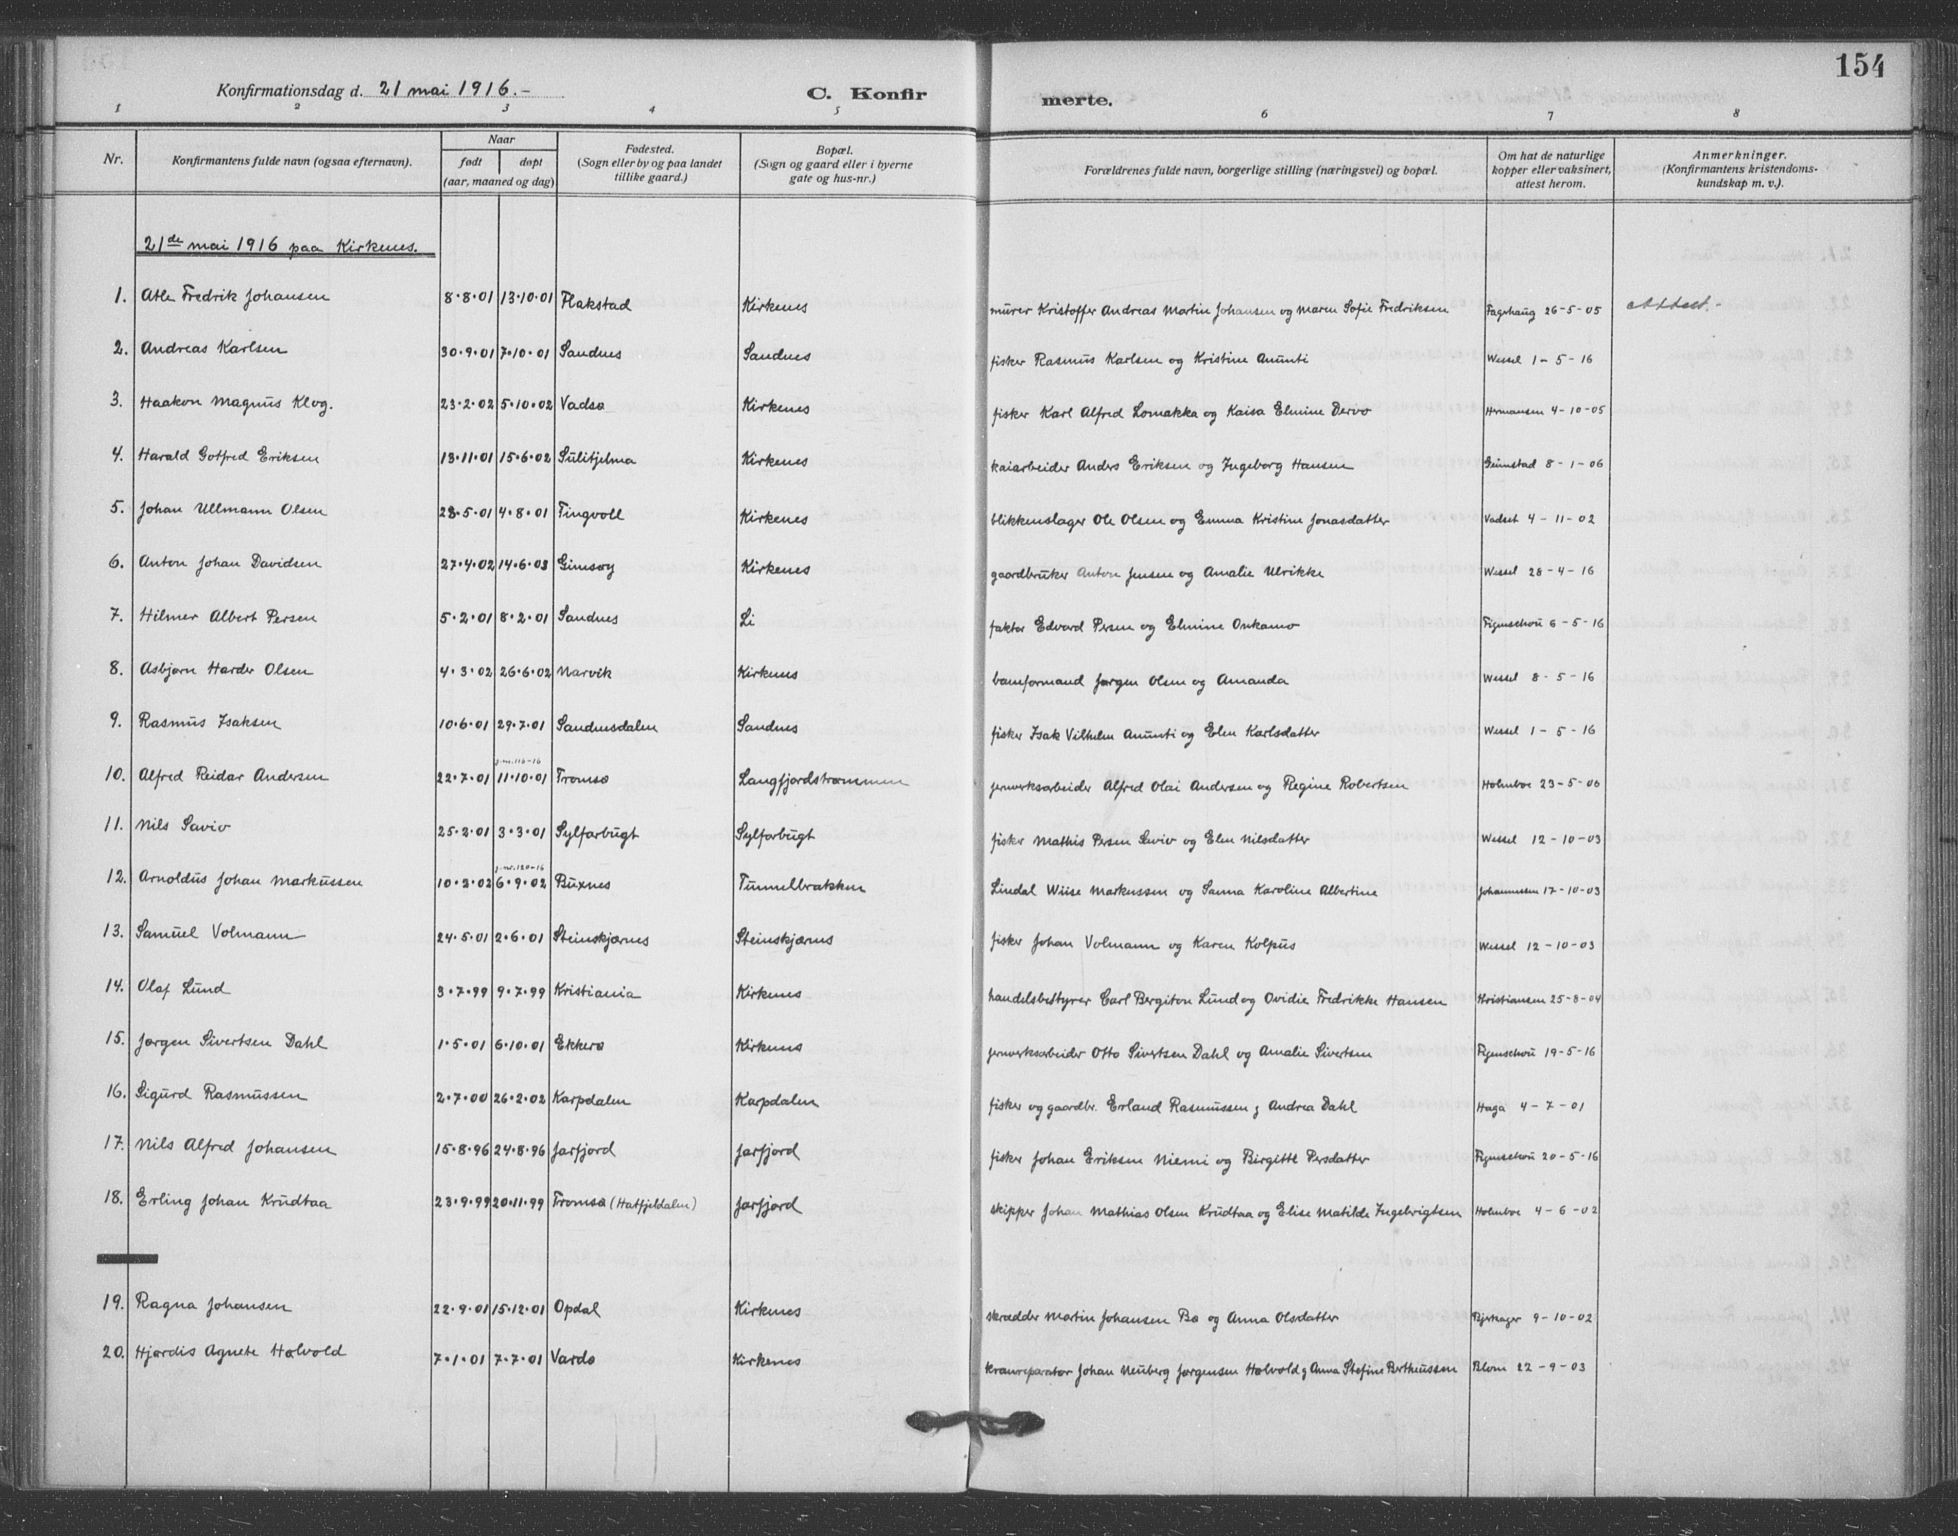 154
Konfirmationsdag d. 21 mai 1916.-
C. Konfirmerte.
1 2 3 4 5 6 7 8
Nr.
Konfirmantens fulde navn (ogsaa efternavn).
Naar
født døpt
(aar, maaned og dag)
Fødested.
(Sogn eller by og paa landet
tillike gaard.)
Bopæl.
(Sogn og gaard eller i byerne
gate og hus-nr.)
Forældrenes fulde navn, borgerlige stilling (næringsvei) og bopæl.
Om hat de naturlige
kopper eller vaksinert,
attest herom.
Anmerkninger.
(Konfirmantens kristendoms-
kundskap m. v.).
21de mai 1916 paa Kirkenes.
1. Atle Fredrik Johansen 8·8·01 13·10·01 Flakstad Kirkenes murer Kristoffer Andreas Martin Johansen og Maren Sofie Fredriksen Fagerhaug 26-5-05 Attest.
2. Andreas Karlsen 30·9·01 7·10·01 Sandnes Sandnes fisker Rasmus Karlsen og Kristine Anunti Wessel 1-5-16
3. Haakon Magnus Klog. 23·2·02 5·10·02 Vadsø Kirkenes fisker Karl Alfred Lomakka og Kaisa Elmine Dervo Hermansen 4-10-05
4. Harald Gotfred Eriksen 13·11·01 15·6·02 Sulitjelma Kirkenes kaiarbeider Anders Eriksen og Ingeborg Hansen 8-1-06
5. Johan Ullmann Olsen 28·5·01 4·8·01 Tingvoll Kirkenes blikkenslager Ole Olsen og Emma Kristine Jonasdatter 4-11-02
6. Anton Johan Davidsen 27·4·02 14·6·03 Gimsøy Kirkenes gaardbruker Anton Jensen og Amalie Ulrikke Wessel 28-4-16
7. Hilmer Albert Persen 5·2·01 8·2·01 Sandnes Li faktor Edvard Persen og Elmine Onkamo Figenschou 6-5-16
8. Asbjørn Harder Olsen 4·3·02 26·6·02 Narvik Kirkenes baseformand Jørgen Olsen og Amanda Wessel 8-5-16
9. Rasmus Isaksen 10·6·01 29·7·01 Sandnesdalen Sandnes fisker Isak Vilhelm Anunti og Elen Karlsdatter Wessel 1-5-16
j.nr. 116-16
10. Alfred Reidar Andersen 22·7·01 11·10·01 Tromsø Langfjordstrømmen jernverksarbeider Alfred Olai Andersen og Regine Robertsen Holmboe 23-5-06
11. Nils Savio 25·2·01 3·3·01 Sylfarbugt Sylfarbugt fisker Mathis Persen Savio og Elen Nilsdatter Wessel 12-10-03
j.nr. 120-16
12. Arnoldus Johan Markussen 10·2·02 6·9·02 Buxnes Tunnelbratsken Lindal Wiise Markussen og Sanna Karoline Albertine Johannessen 17-10-03
13. Samuel Volmann 24·5·01 2·6·01 Steinskjærnes Steinskjærnes fisker Johan Volmann og Karen Kolpus Wessel 12-10-03
14. Olaf Lund 3·7·99 9·7·99 Kristiania Kirkenes handelsbestyrer Carl Bergiton Lund og Ovidie Fredrikke Hansen Kristiansen 25-8-04
15. Jørgen Sivertsen Dahl 1·5·01 6·10·01 Ekkerø Kirkenes jernverksarbeider Otto Sivertsen Dahl og Amalie Sivertsen Figenschou 19-5-16
16. Sigurd Rasmussen 2·7·00 26·2·02 Karpdalen Karpdalen fisker og gaardbr. Erland Rasmussen g Andrea Dahl Haga 4-7-01
17. Nils Alfred Johansen 15·8·96 24·8·96 Jarfjord Jarfjord fisker Johan Eriksen Niemi og Birgitte Persdatter Figenschou 20-5-16
18. Erling Johan Krudtaa 23·9·99 20·11·99 Tromsø (Hatfjeldalen) Jarfjord skipper Johan Mathias Olsen Krudtaa og Elise Matilde Ingebrigtsen Holmboe 4-6-02
19. Ragna Johansen 22·9·01 15·12·01 Opdal Kirkenes skrædder Martin Johansen Bø og Anna Olsdatter Bjerkager 9-10-02
20. Hjørdis Agnete Holvold 7·1·01 7·7·01 Vardø Kirkenes kranreparatør Johan Neuberg Jørgensen Holvold g Anna Stefine Bertheussen Blom 22-9-03